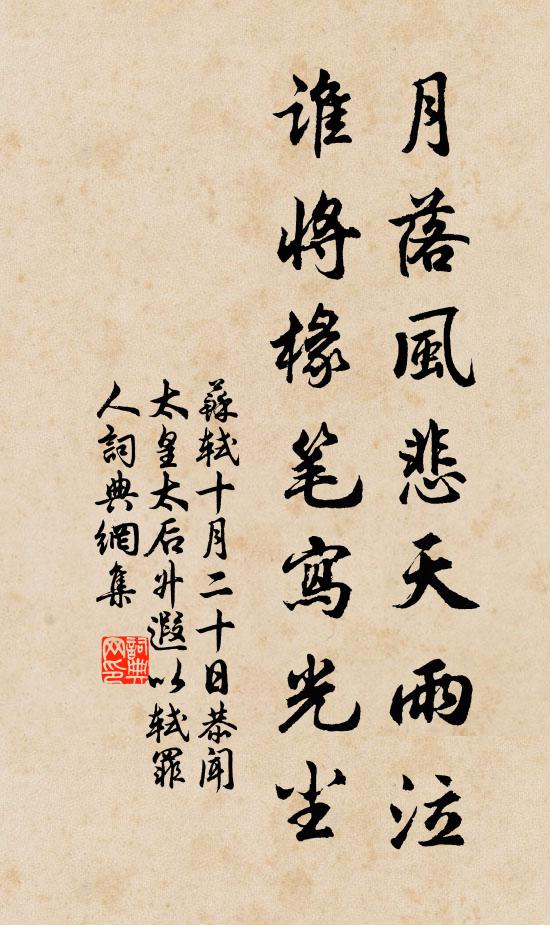 月落風悲天雨泣
谁將椽笔寫光尘
蘇軾十月二十日恭聞
太皇太后升遐以軾罪
人詞典網集
詞典网印